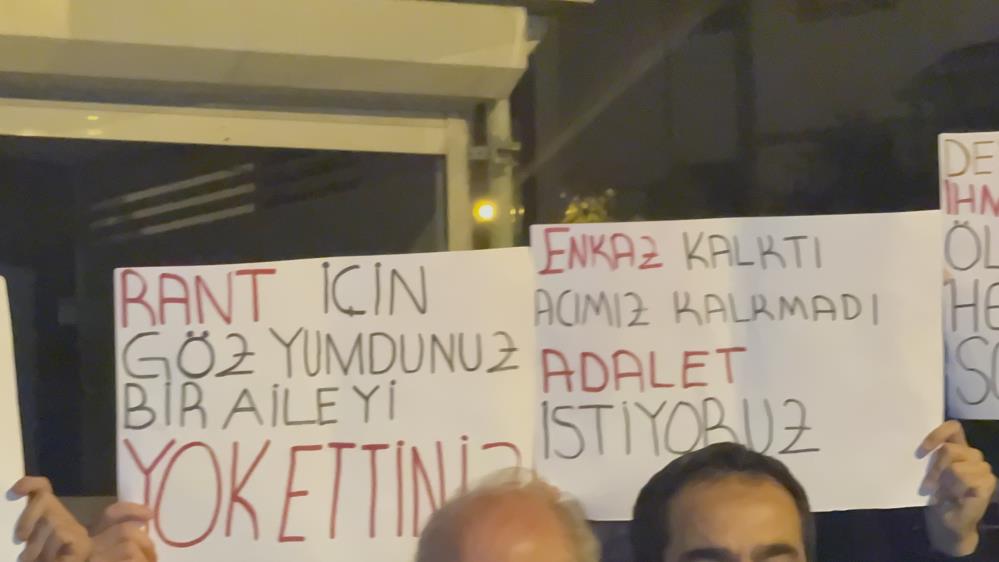 RANT İÇİN
GÖZ YUMDUNUZ
BİR AİLEYİ
YOKETTİNİZ
ENKAZ KALKTI
ACIMIZ KALKMADI
ADALET
İSTİYORUZ